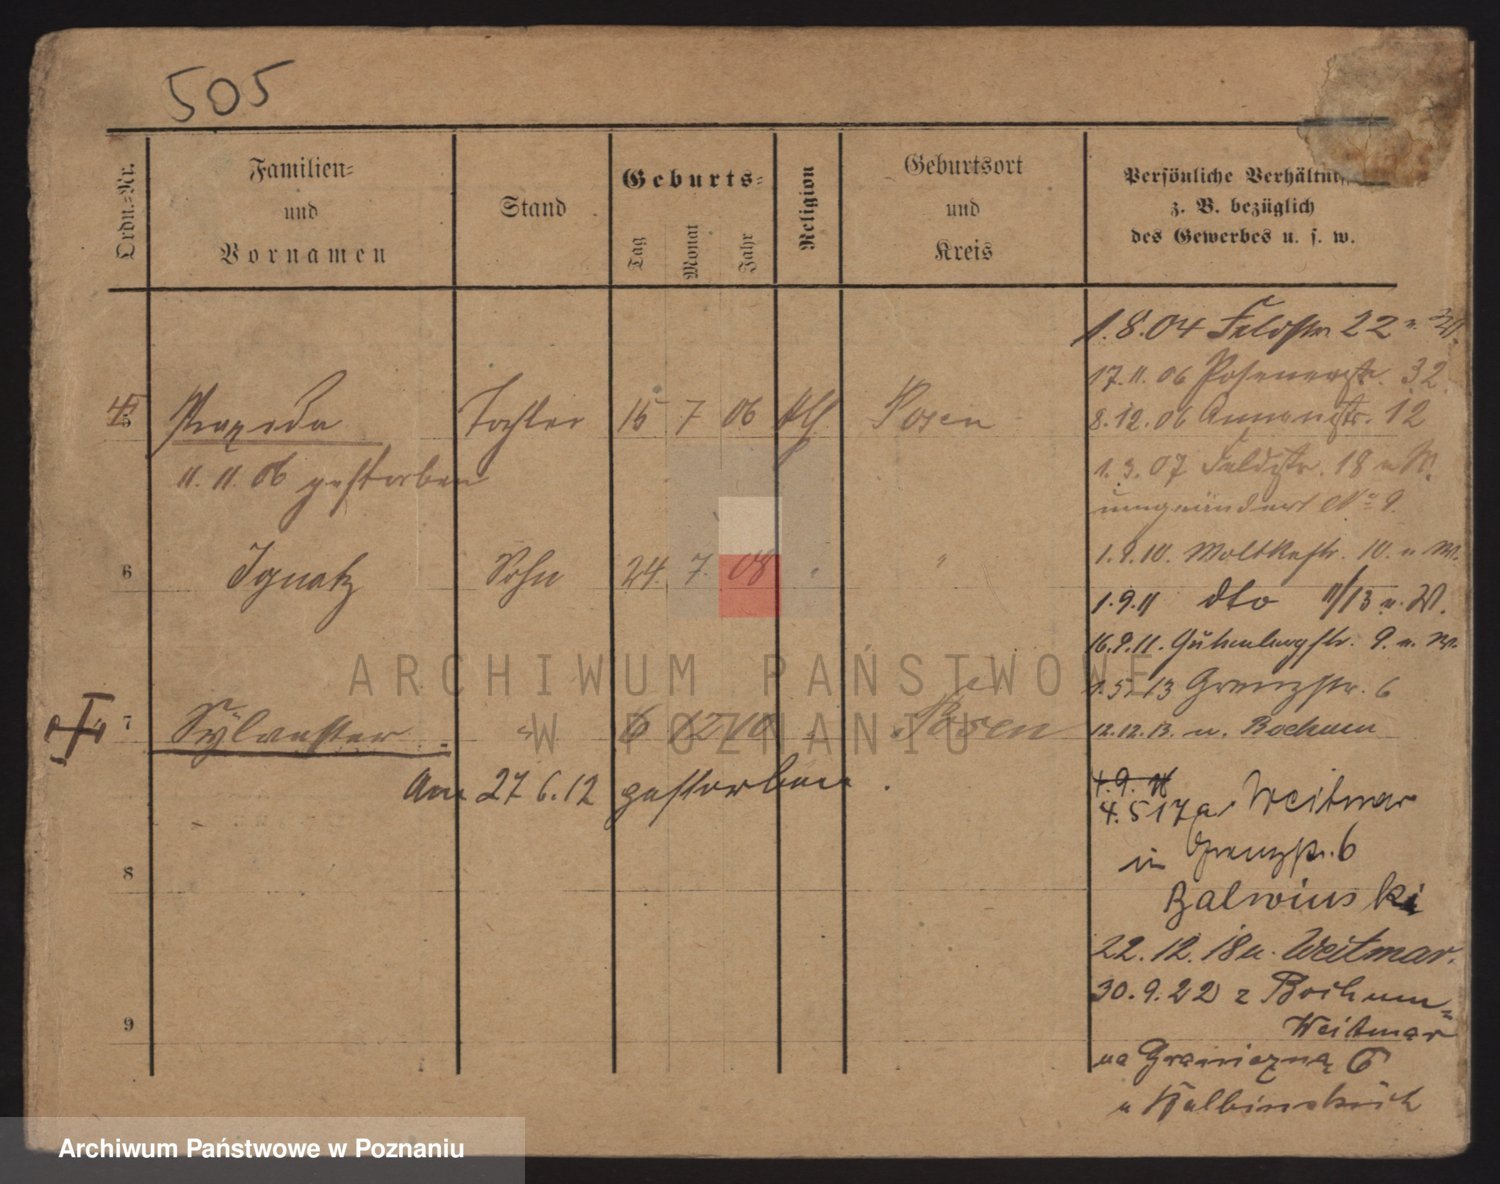 505
Ordn.-Nr.
Familien-
und
Vornamen
Stand
Geburts-
Tag
Monat
Jahr
Religion
Geburtsort
und
Kreis
Persönliche Verhältni
z. B. bezüglich
des Gewerbes u. s. w.
1.8.04 Feldstr. 22 u. W.
17.11.06 Posenerstr. 32
5 Praxeda Tochter 15 7 06 kth. Posen
8.12.06 Annenstr. 12
11.11.06 gestorben
1.3.07 Feldstr. 18 u W.
umgeändert No 9.
1.9.10. Moltkestr. 10. u W.
6 Ignatz Sohn 24. 7. 08 " "
1.9.11 dto 11/13 u. W.
16.9.11. Gutenbergstr. 9. u. W.
1.5.13 Grenzstr. 6
7 Sylvester " 6 12 10 " Posen
12.12.13. n. Bochum
Am 27 6.12 gestorben.
4.9.
4.5 17 a. Weitmar
in Grenzstr. 6
8
Balwinski
22.12.18 n. Weitmar.
30.9.22 z Bochum-
Weitmar
9
na Graniczną 6
u Kulbinskich
ARCHIWUM PAŃSTWOWE
W POZNANIU
Archiwum Państwowe w Poznaniu